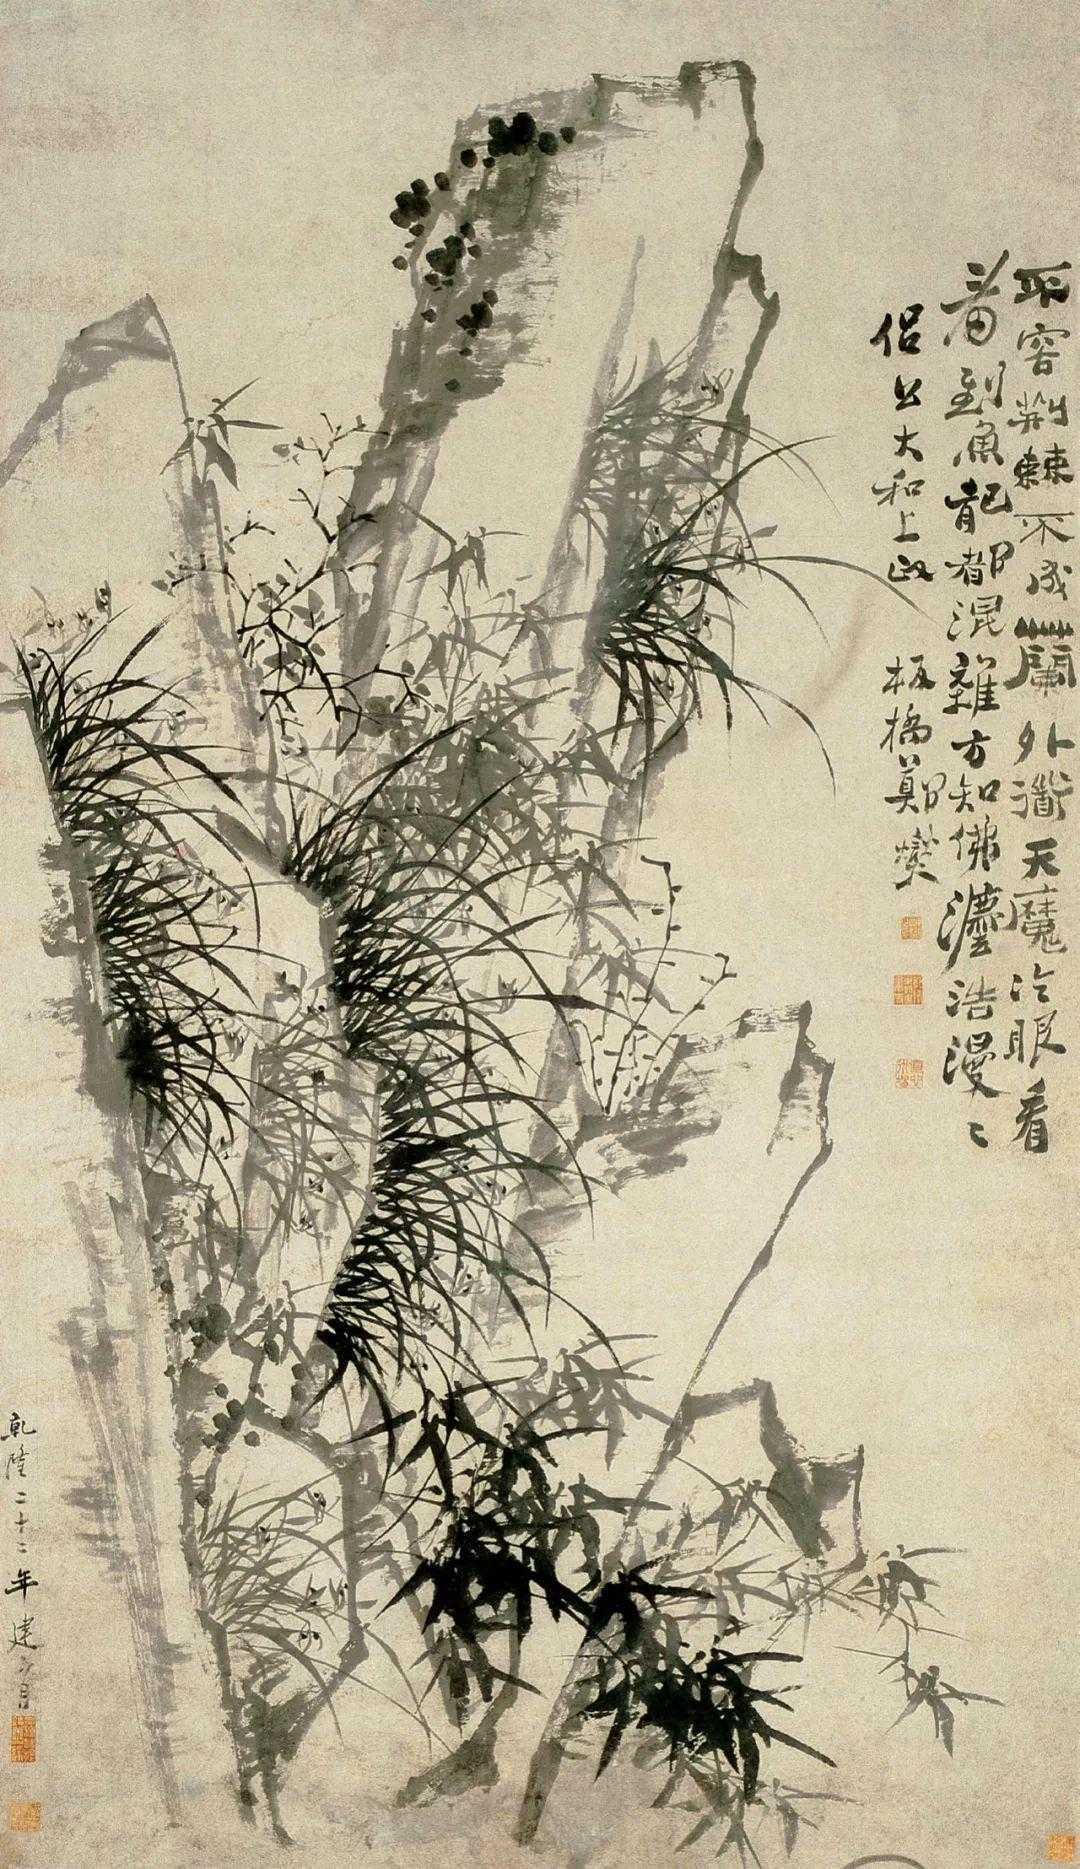 不容荆棘不成蘭外道天魔冷眼看
看到魚龍都混雜方知佛灋浩漫〻
侣公大和上政　板橋鄭燮
乾隆二十二年建子月